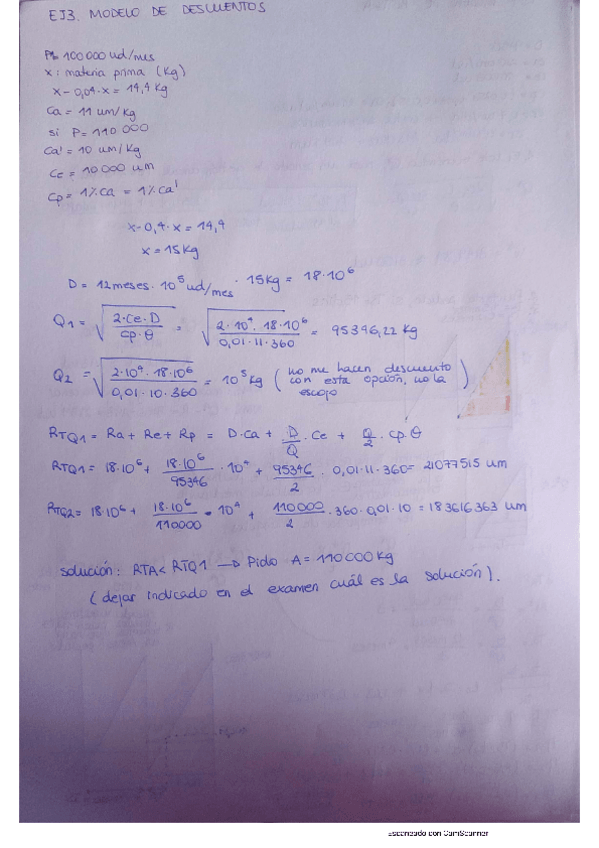 EJ3. MODELO DE DESCUENTOS
P= 100 000 ud/mes
x: materia prima (Kg)
x - 0,04·x = 14,4 Kg
Ca = 11 um/Kg
si P= 110 000
Ca' = 10 um/Kg
Ce = 10 000 um
Cp = 1% Ca = 1% Ca'
x - 0,4·x = 14,4
x = 15 Kg
D = 12 meses · 10⁵ ud/mes · 15Kg = 18·10⁶
Q1 = √(2·Ce·D / Cp·θ) = √(2·10⁴·18·10⁶ / 0,01·11·360) = 95346,22 Kg
Q2 = √(2·10⁴·18·10⁶ / 0,01·10·360) = 10⁵ Kg (no me hacen descuento con esta opción, no la escojo)
RTQ1 = Ra + Re + Rp = D·Ca + D/Q · Ce + Q/2 · Cp·θ
RTQ1 = 18·10⁶ + 18·10⁶/95346 · 10⁴ + 95346/2 · 0,01·11·360 = 21077515 um
RTQ2 = 18·10⁶ + 18·10⁶/110000 · 10⁴ + 110000/2 · 360·0,01·10 = 183616363 um
solución: RTA < RTQ1 → Pido A = 110000 Kg
(dejar indicado en el examen cuál es la solución).
Escaneado con CamScanner